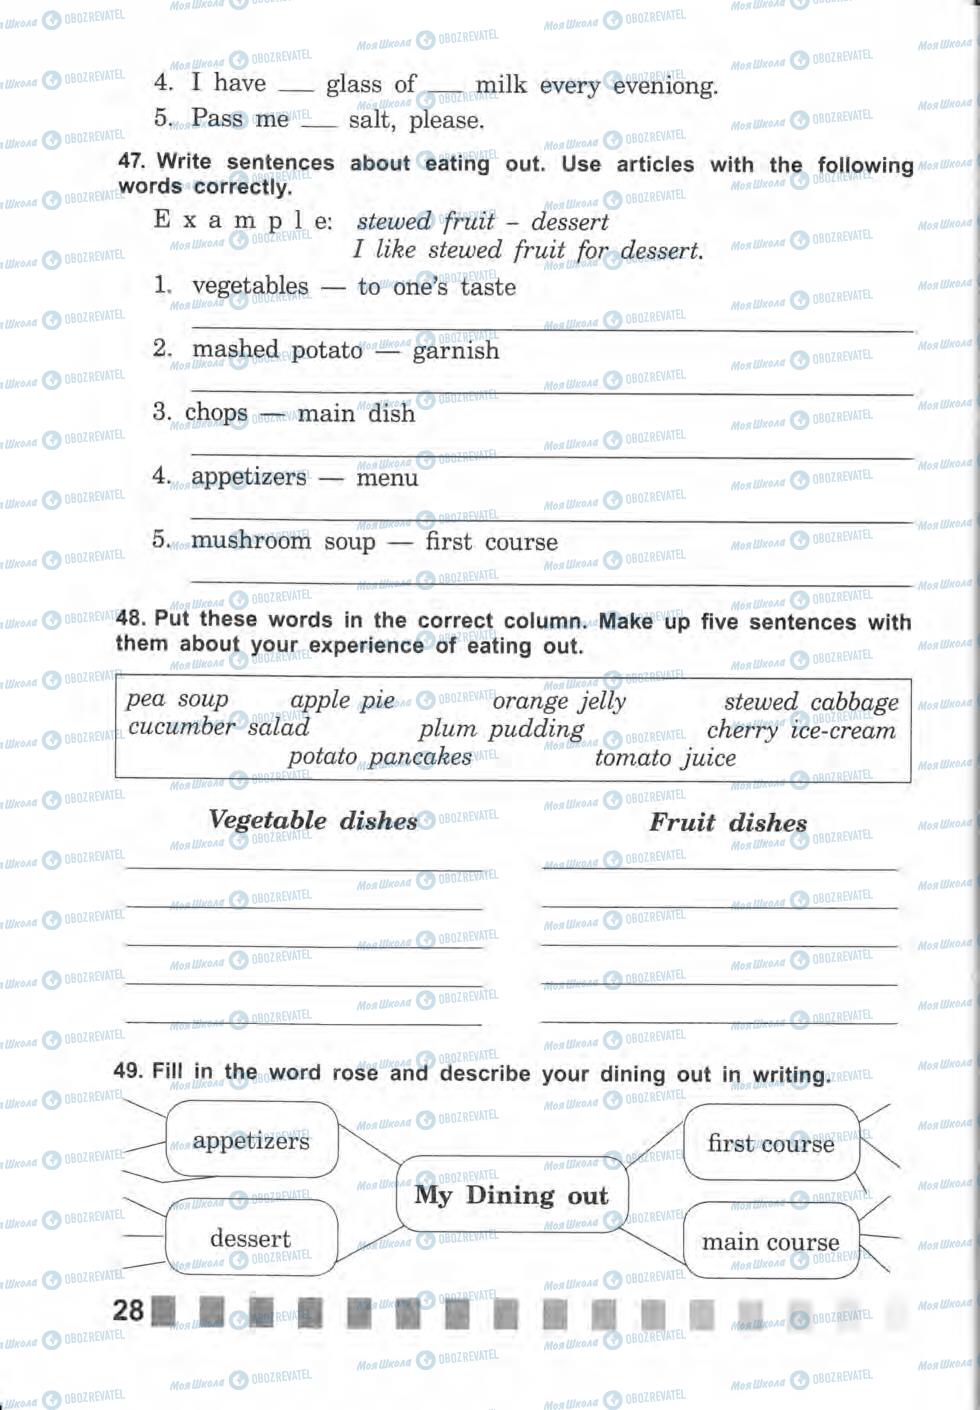 4. I have ___ glass of ___ milk every eveniong.
5. Pass me ___ salt, please.
47. Write sentences about eating out. Use articles with the following
words correctly.
Example: stewed fruit – dessert
I like stewed fruit for dessert.
1. vegetables — to one's taste
2. mashed potato — garnish
3. chops — main dish
4. appetizers — menu
5. mushroom soup — first course
48. Put these words in the correct column. Make up five sentences with
them about your experience of eating out.
pea soup apple pie orange jelly stewed cabbage
cucumber salad plum pudding cherry ice-cream
potato pancakes tomato juice
Vegetable dishes Fruit dishes
49. Fill in the word rose and describe your dining out in writing.
appetizers first course
My Dining out
dessert main course
28
МояШкола OBOZREVATEL